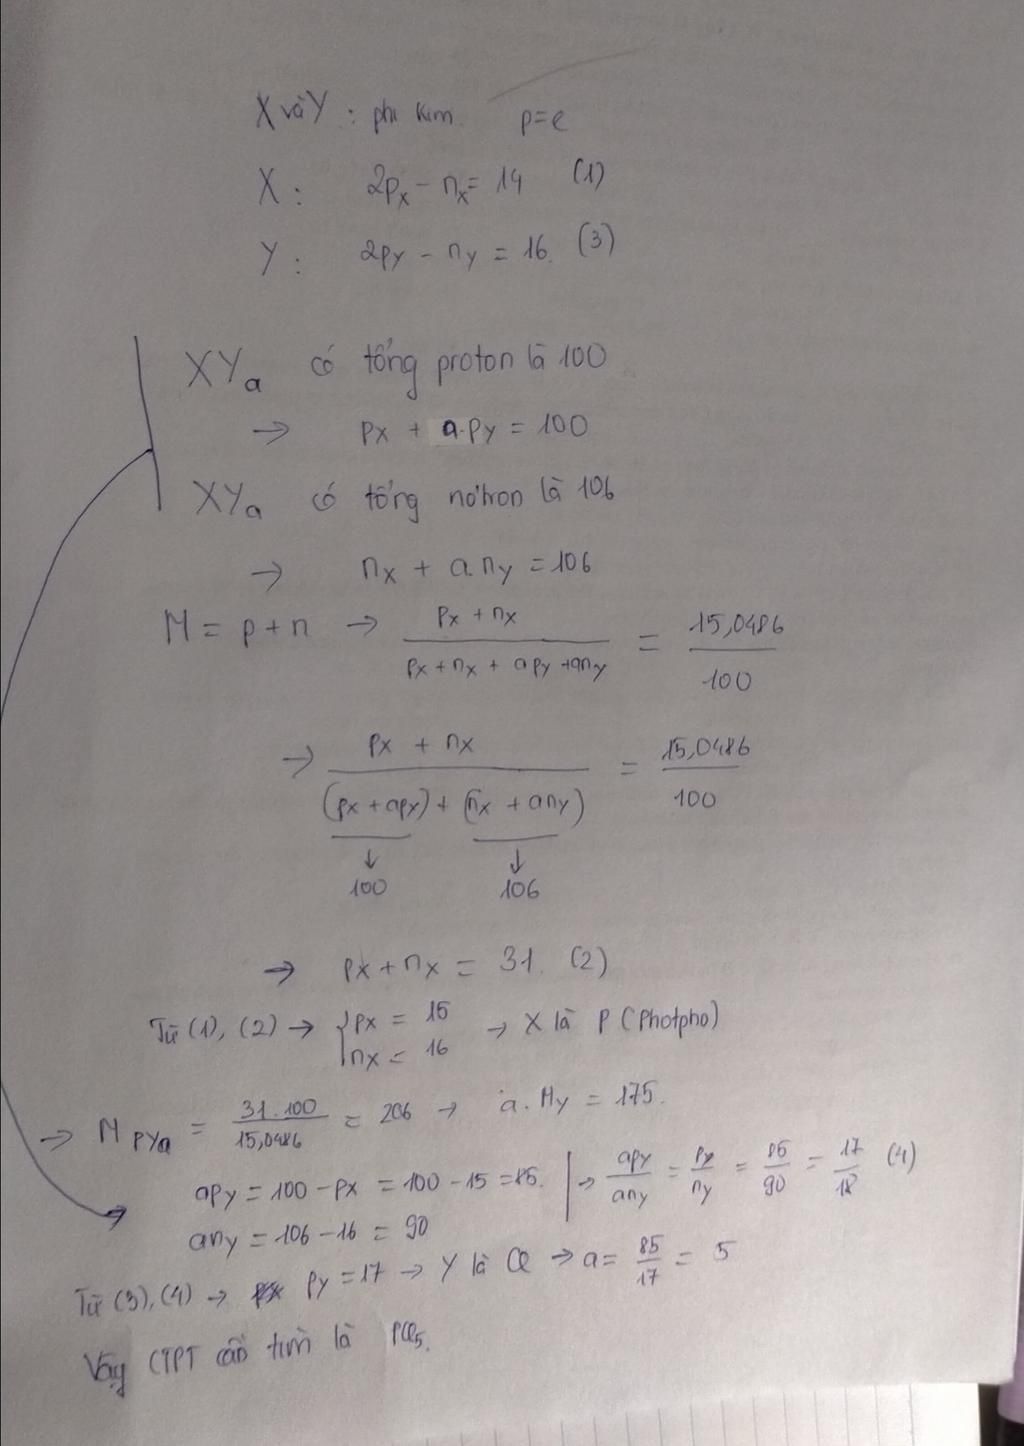 X và Y : phi kim. p=e
X : 2pₓ - nₓ = 14 (1)
Y : 2py - ny = 16. (3)
XYₐ có tổng proton là 100
→ px + a.py = 100
XYₐ có tổng nơtron là 106
→ nx + a.ny = 106
M = p+n → (px + nx)/(px + nx + apy + any) = 15,0486/100
→ (px + nx)/((px + apy) + (nx + any)) = 15,0486/100
↓ ↓
100 106
→ px + nx = 31. (2)
Từ (1), (2) → { px = 15 nx = 16 → X là P (Photpho)
→ M PYa = 31.100/15,0486 = 206 → a.My = 175.
apy = 100 - px = 100 - 15 = 85. | → apy/any = py/ny = 85/90 = 17/18 (4)
any = 106 - 16 = 90
Từ (3), (4) → py = 17 → Y là Cl → a = 85/17 = 5
Vậy CTPT cần tìm là PCl₅.